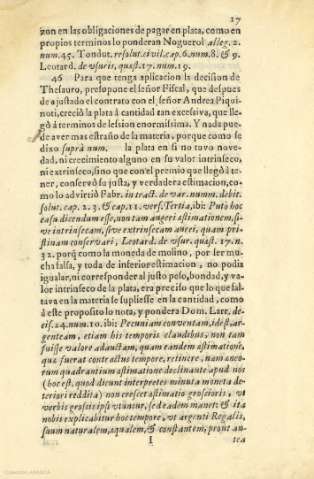 17
zon en las obligaciones de pagar en plata, como en
propios terminos lo ponderan Noguerol alleg. 2.
num. 45. Tondut. resolut. civil. cap. 6. num. 8. & 9.
Leotard. de vsuris, quæst. 17. num. 19.
46 Para que tenga aplicacion la decision de
Thesauro, presupone el señor Fiscal, que despues
de ajustado el contrato con el señor Andrea Piqui-
noti, creciò la plata à cantidad tan excesiva, que lle-
gò á terminos de lesion enormissima. Y nada pue-
de aver mas estraño de la materia, porque como se
dixo suprà num. la plata en si no tuvo nove-
dad, ni crecimiento alguno en su valor intrinseco,
ni extrinseco, sino que con el premio que llegò à te-
ner, conservò su justa, y verdadera estimacion, co-
mo lo advirtiò Fabr. in tract. de var. numm. debit.
solut. cap. 2. 3. & cap. 11. vers. Tertia, ibi: Puto hoc
casu dicendum esse, non tam augeri æstimationem, si-
ve intrinsecam, sive extrinsecam aurei, quam pri-
stinam conservari, Leotard. de vsur. quæst. 17. n.
32. porq̃ como la moneda de molino, por ser mu-
cha falsa, y toda de inferior estimacion, no podia
igualar, ni corresponder al justo peso, bondad, y va-
lor intrinseco de la plata, era preciso que lo que fal-
tava en la materia se supliesse en la cantidad, como
à este proposito lo nota, y pondera Dom. Lare. de-
cis. 24. num. 10. ibi: Pecuniam conventam, id est, ar-
genteam, etiam his temporis claudibus, non tam
fuisse valore adauctam, quam eandem æstimationē,
quæ fuerat contractus tempore, retinere, nam æneo-
rum quadrantium æstimatione declinante apud nos
(hoc est, quod dicunt interpretes minuta moneta de-
teriori reddita) non crescit æstimatio grossioris, vt
verbis grossè ipsi vtuntur, sed eadem manet: & ita
nobis explicabitur hoc tempore, vt argenti Regalis,
suum naturalem, æqualem, & constantem, prout an-
I
tea